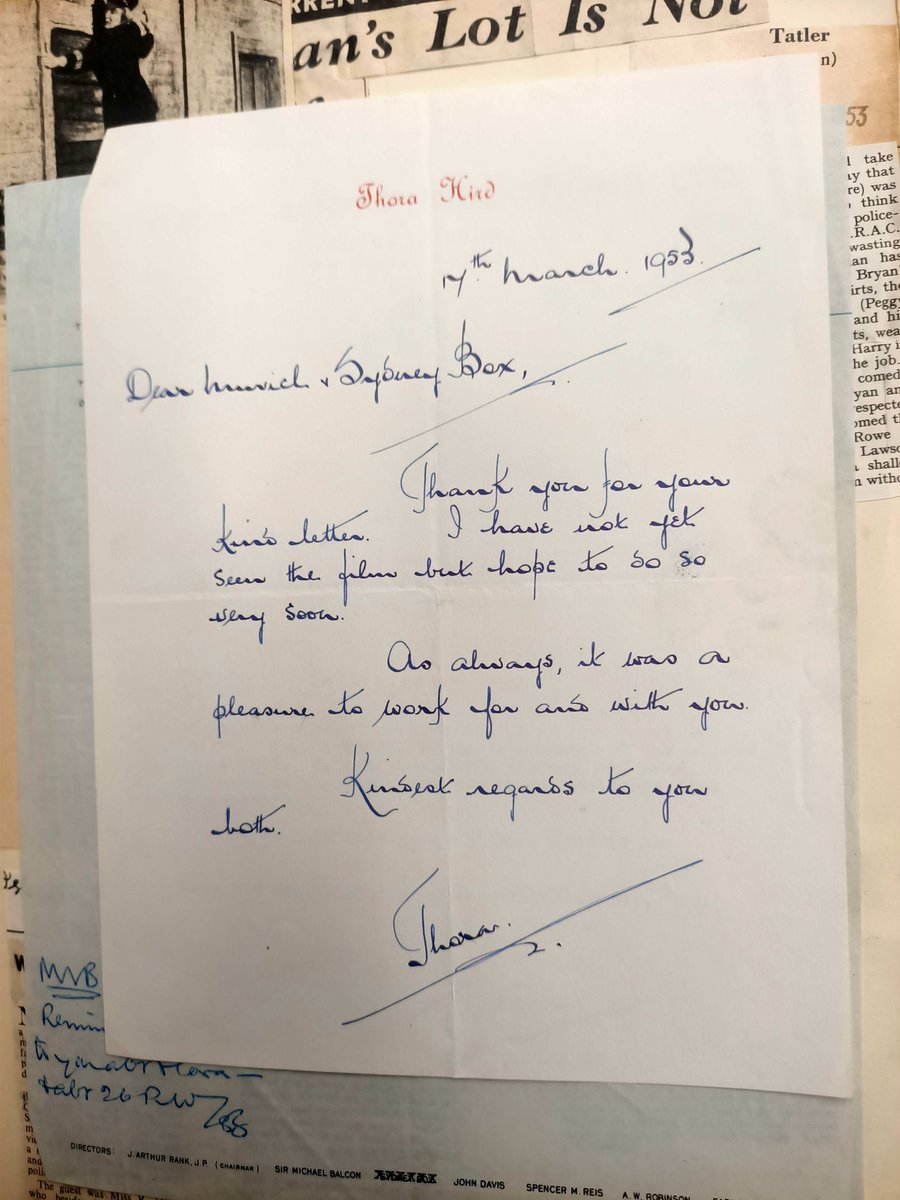 an's Lot Is Not
Tatler
53
Thora Hird
17th March. 1953.
Dear Muriel & Sydney Box,
Thank you for your
kind letter. I have not yet
seen the film but hope to do so
very soon.
As always, it was a
pleasure to work for and with you.
Kindest regards to you
both.
Thora.
take
ay that
re) was
think
police-
.R.A.C.
wasting
an has
Bryan'
irts, the
(Peggy
and hi
ts, wea
Harry i
he job.
comed
yan an
especte
omed th
Rowe
Lawso
shall
n witho
MVB
DIRECTORS: J. ARTHUR RANK, J.P. (CHAIRMAN) SIR MICHAEL BALCON JOHN DAVIS SPENCER M. REIS A. W. ROBINSON
The guest was Miss